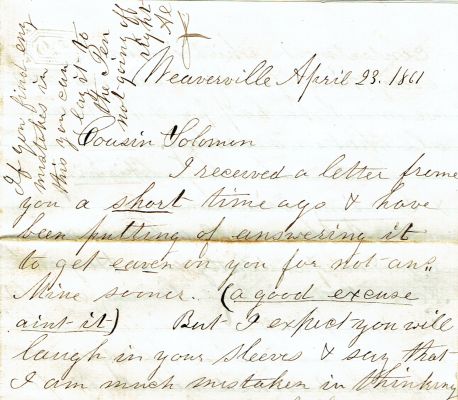 If you find eny
mistakes in
this you can
lay it to
the Pen
not going off
right
Weaverville April 23. 1861
Cousin Solomon
I received a letter frome
you a short time ago & have
been putting of answering it
to get eaven on you for not an"
Mine sooner. (a good excuse
aint it) But I expect you will
laugh in your sleeves & say that
I am much mistaken in thinking